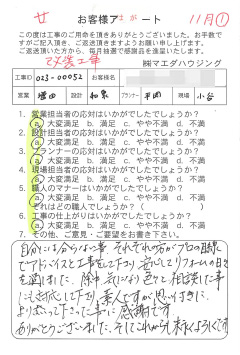 お客様アンケート 11月①
この度は工事のご用命を頂きありがとうございます。お手数で
すがご記入頂き、ご返送頂きますようお願い申し上げます。
ご返送頂いた方から、毎月抽選で感謝品を進呈いたします。
改装工事
㈱マエダハウジング
工事ID 023-00052 お名前
営業 増田 設計 和泉 プランナー 平岡 現場 小谷
1. 営業担当者の応対はいかがでしたでしょうか?
a. 大変満足 b. 満足 c. やや不満 d. 不満
2. 設計担当者の応対はいかがでしたでしょうか?
a. 大変満足 b. 満足 c. やや不満 d. 不満
3. プランナーの応対はいかがでしたでしょうか?
a. 大変満足 b. 満足 c. やや不満 d. 不満
4. 現場担当者の応対はいかがでしたでしょうか?
a. 大変満足 b. 満足 c. やや不満 d. 不満
5. 職人のマナーはいかがでしたでしょうか?
a. 大変満足 b. 満足 c. やや不満 d. 不満
それはどの職人でしょうか( )
6. 工事の仕上がりはいかがでしたでしょうか?
a. 大変満足 b. 満足 c. やや不満 d. 不満
7. その他、ご意見・ご要望をお書き下さい。
自分たちに分らない事、それぞれ方がプロの目線
でアドバイスと工事をして下さり、安心してリフォームの日々
を過しました。途中、気になり色々と相談した事に
も対応して下さり、素人ですが思い付きに
より添って下さった事に感謝です
ありがとうございました、そしてこれからも末永くよろしくです